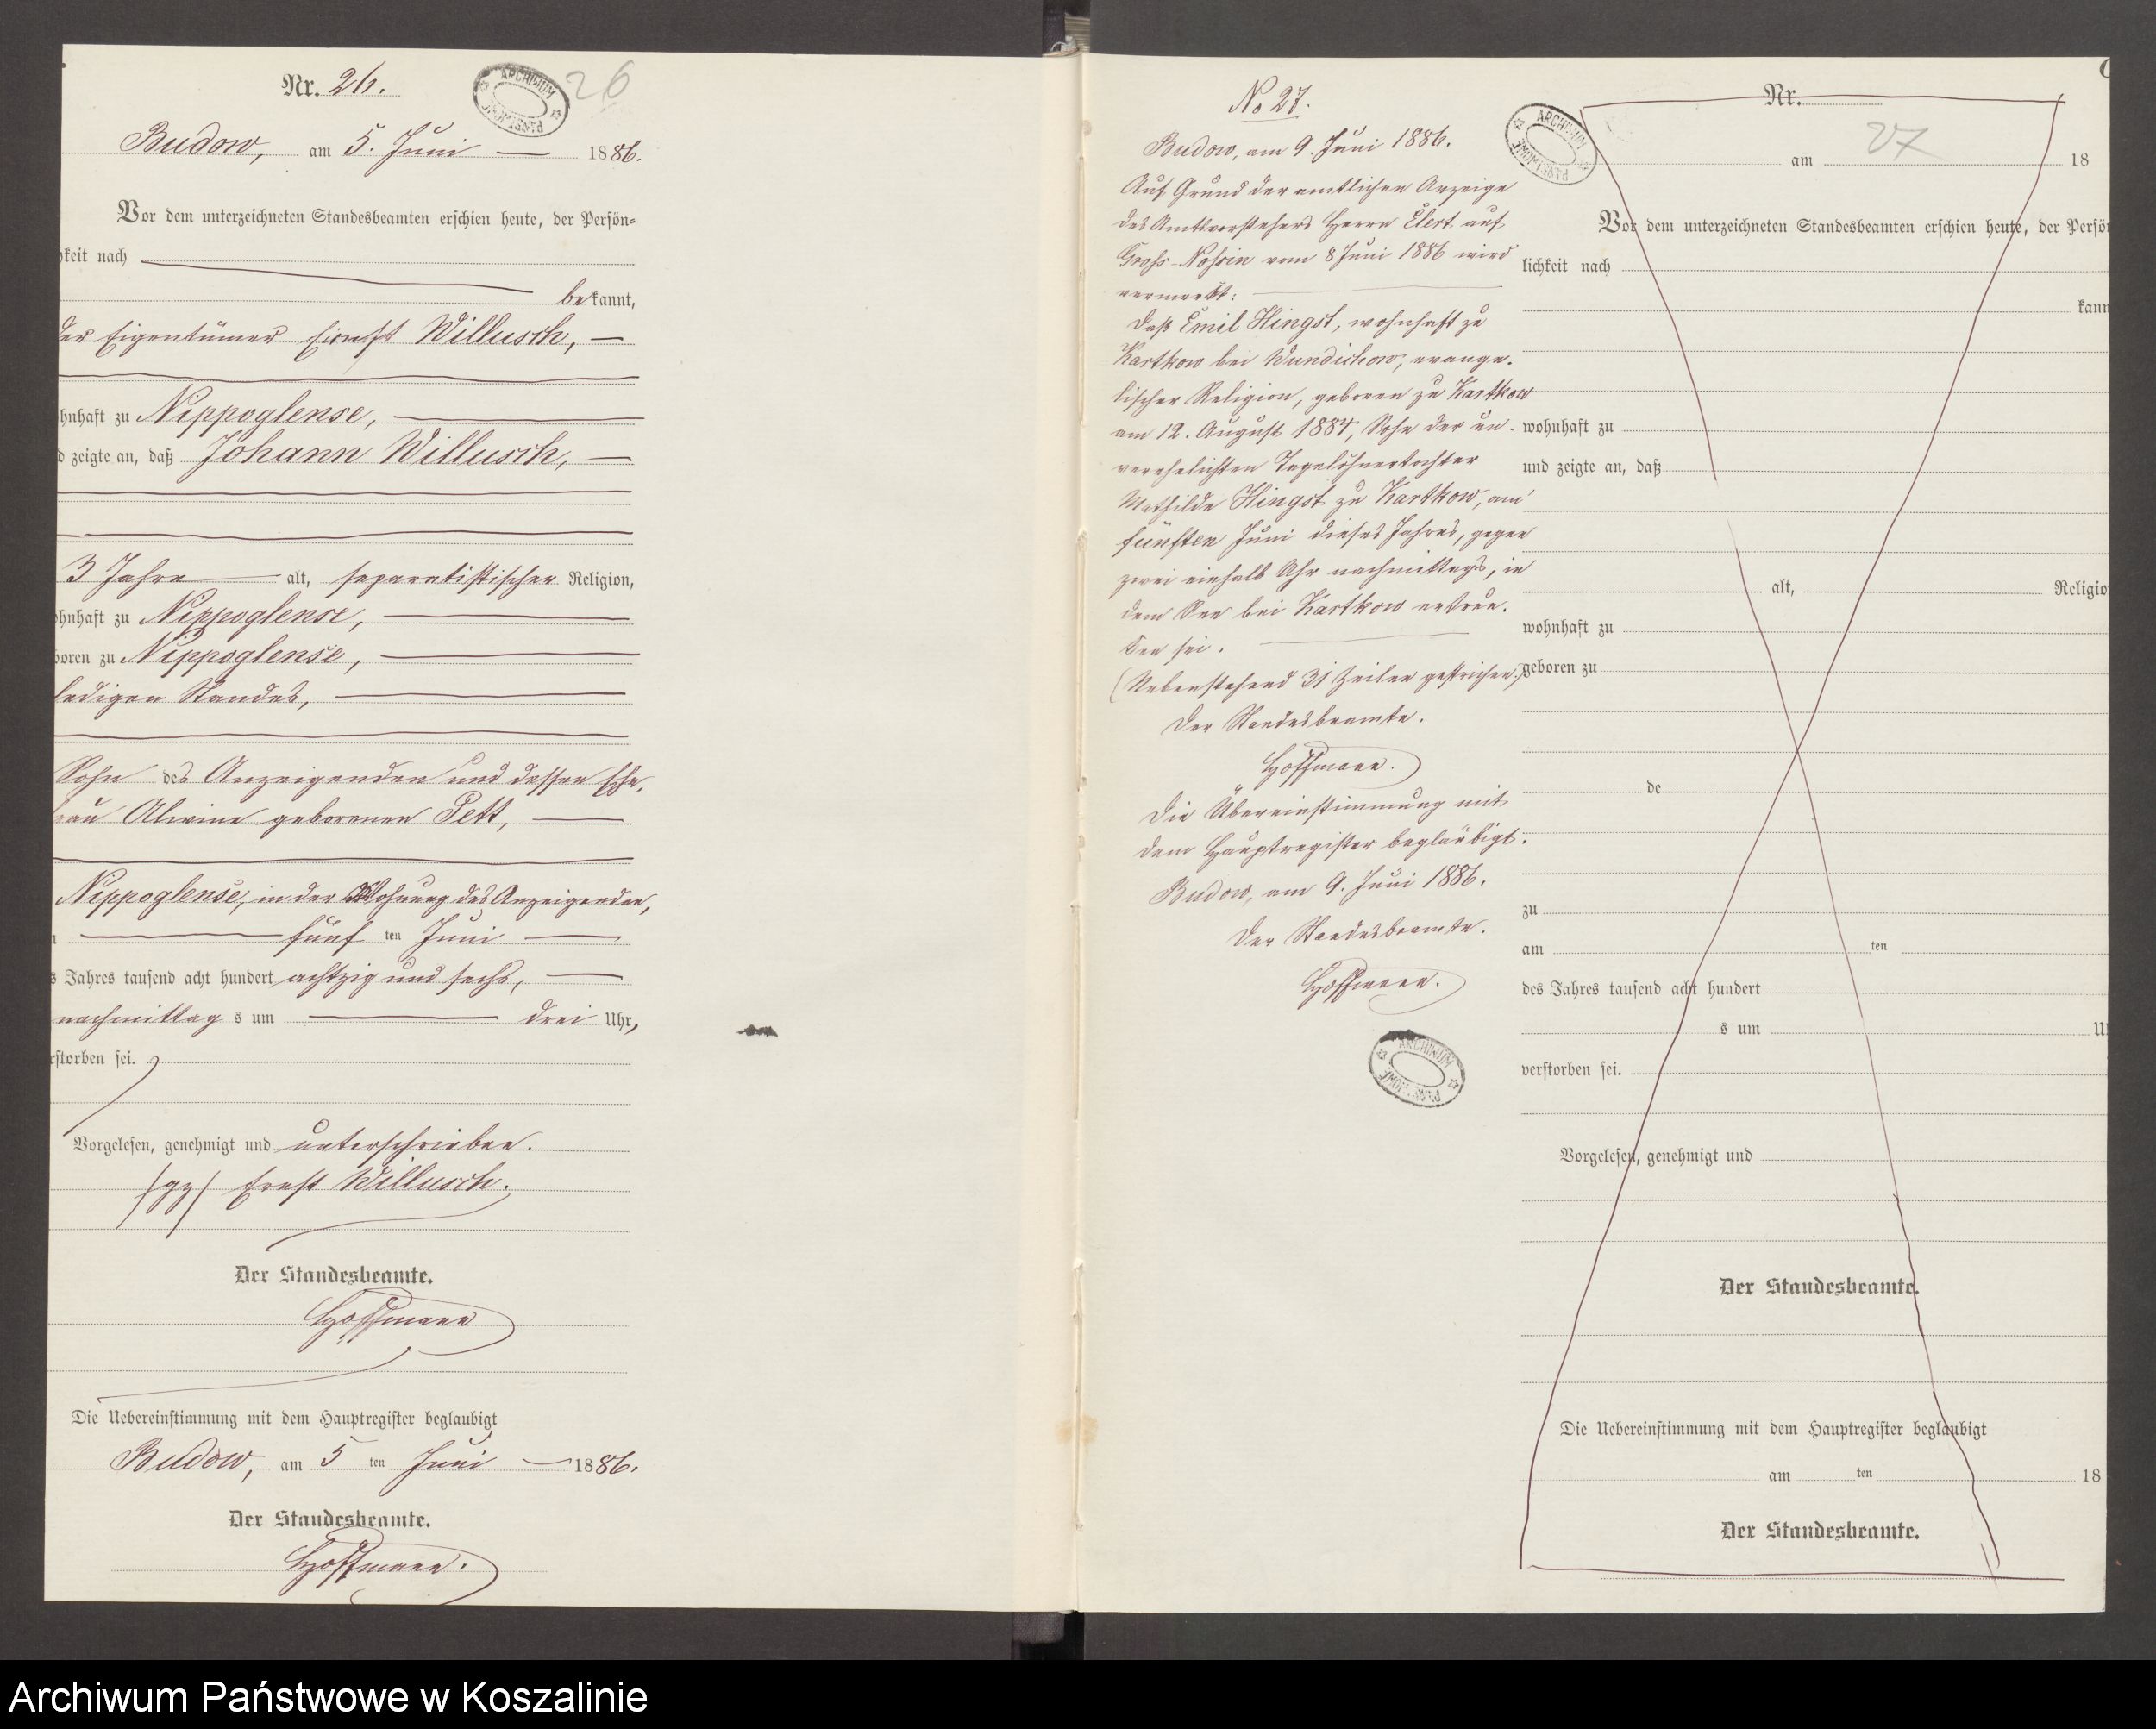 Nr. 26.
26
Budow, am 5. Juni 1886.
Vor dem unterzeichneten Standesbeamten erschien heute, der Persön-
keit nach
bekannt,
der Eigentümer Ernst Willusch,
hnhaft zu Nippoglense,
d zeigte an, daß Johann Willusch,
3 Jahre alt, separatistischer Religion,
ohnhaft zu Nippoglense,
boren zu Nippoglense,
ledigen Standes,
Sohn des Anzeigenden und dessen Ehe-
rau Alwine geborenen Pett,
Nippoglense, in der Wohnung des Anzeigenden,
fünf ten Juni
s Jahres tausend acht hundert achtzig und sechs,
nachmittag s um drei Uhr,
rstorben sei.
Vorgelesen, genehmigt und unterschrieben.
(gz) Ernst Willusch.
Der Standesbeamte.
Hoffmann
Die Uebereinstimmung mit dem Hauptregister beglaubigt
Budow, am 5 ten Juni 1886.
Der Standesbeamte.
Hoffmann.
No 27.
Budow, am 9. Juni 1886.
Auf Grund der amtlichen Anzeige
des Amtsvorstehers Herrn Elert auf
Gross-Nossin vom 8 Juni 1886 wird
vermerkt:
Daß Emil Hingst, wohnhaft zu
Kartkow bei Wundichow, evange-
lischer Religion, geboren zu Kartkow
am 12. August 1884, Sohn der un-
verehelichten Tagelöhnertochter
Mathilde Hingst zu Kartkow, am
fünften Juni dieses Jahres, gegen
zwei einhalb Uhr nachmittags, in
dem See bei Kartkow ertrun-
ken sei.
(Nebenstehend 31 Zeilen gestrichen.)
Der Standesbeamte.
Hoffmann.
Die Übereinstimmung mit
dem Hauptregister beglaubigt.
Budow, am 9. Juni 1886.
Der Standesbeamte.
Hoffmann.
ARCHIWUM
Nr.
27
am 18
Vor dem unterzeichneten Standesbeamten erschien heute, der Persön
lichkeit nach
kann
wohnhaft zu
und zeigte an, daß
alt, Religio
wohnhaft zu
geboren zu
de
zu
am ten
des Jahres tausend acht hundert
s um U
verstorben sei.
Vorgelesen, genehmigt und
Der Standesbeamte.
Die Uebereinstimmung mit dem Hauptregister beglaubigt
am ten 18
Der Standesbeamte.
Archiwum Państwowe w Koszalinie